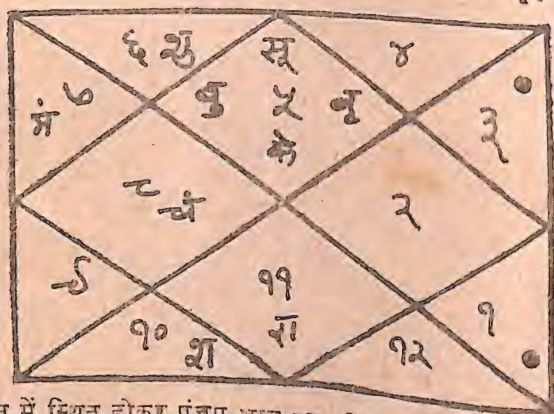 ६ शु
सू
४
मं ७
बु ५ बृ
३
के
८ चं
२
९
११
१० श
रा
१२
१
में स्थित होकर पंचम